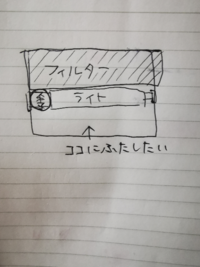 フィルター
ライト
ココにふたしたい